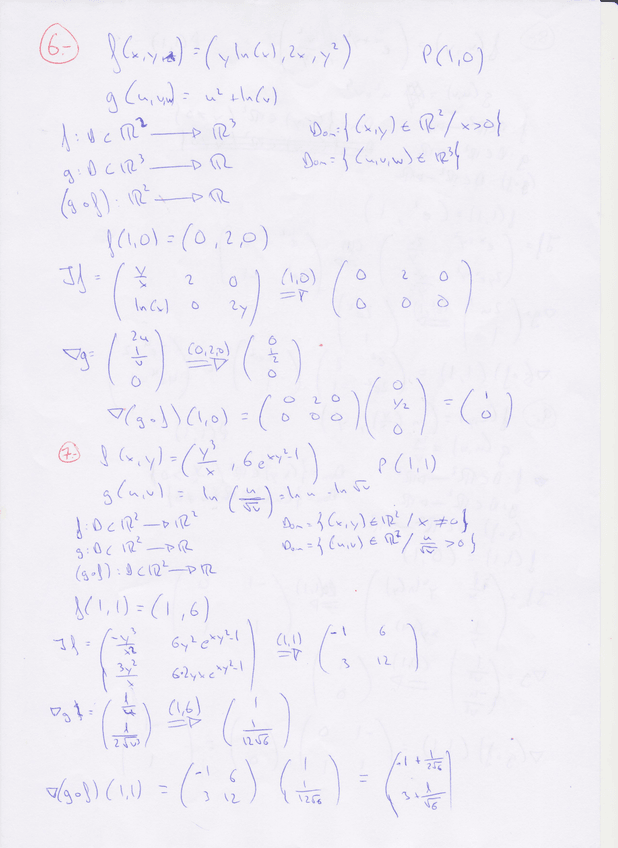 6.- f(x,y) = (y ln(x), 2x, y²) P(1,0)
g(u,v,w) = u² + ln(v)
f: D ⊂ ℝ² → ℝ³ Dom = {(x,y) ∈ ℝ² / x>0}
g: D ⊂ ℝ³ → ℝ Dom = {(u,v,w) ∈ ℝ³}
(g∘f): ℝ² → ℝ
f(1,0) = (0,2,0)
Jf = ( y/x 2 0 ; ln(x) 0 2y ) (1,0) ⇒ ( 0 2 0 ; 0 0 0 )
∇g = ( 2u ; 1/v ; 0 ) (0,2,0) ⇒ ( 0 ; 1/2 ; 0 )
∇(g∘f)(1,0) = ( 0 2 0 ; 0 0 0 ) ( 0 ; 1/2 ; 0 ) = ( 1 ; 0 )
7.- f(x,y) = ( y³/x , 6e^(xy²-1) ) P(1,1)
g(u,v) = ln( u/√v ) = ln u - ln √v
f: D ⊂ ℝ² → ℝ² Dom = {(x,y) ∈ ℝ² / x ≠ 0}
g: D ⊂ ℝ² → ℝ Dom = {(u,v) ∈ ℝ² / u/√v > 0}
(g∘f): D ⊂ ℝ² → ℝ
f(1,1) = (1,6)
Jf = ( -y³/x² 6y² e^(xy²-1) ; 3y²/x 6·2yx e^(xy²-1) ) (1,1) ⇒ ( -1 6 ; 3 12 )
∇g = ( 1/u ; 1/2√v³ ) (1,6) ⇒ ( 1 ; 1/12√6 )
∇(g∘f)(1,1) = ( -1 6 ; 3 12 ) ( 1 ; 1/12√6 ) = ( -1 + 1/2√6 ; 3 + 1/√6 )